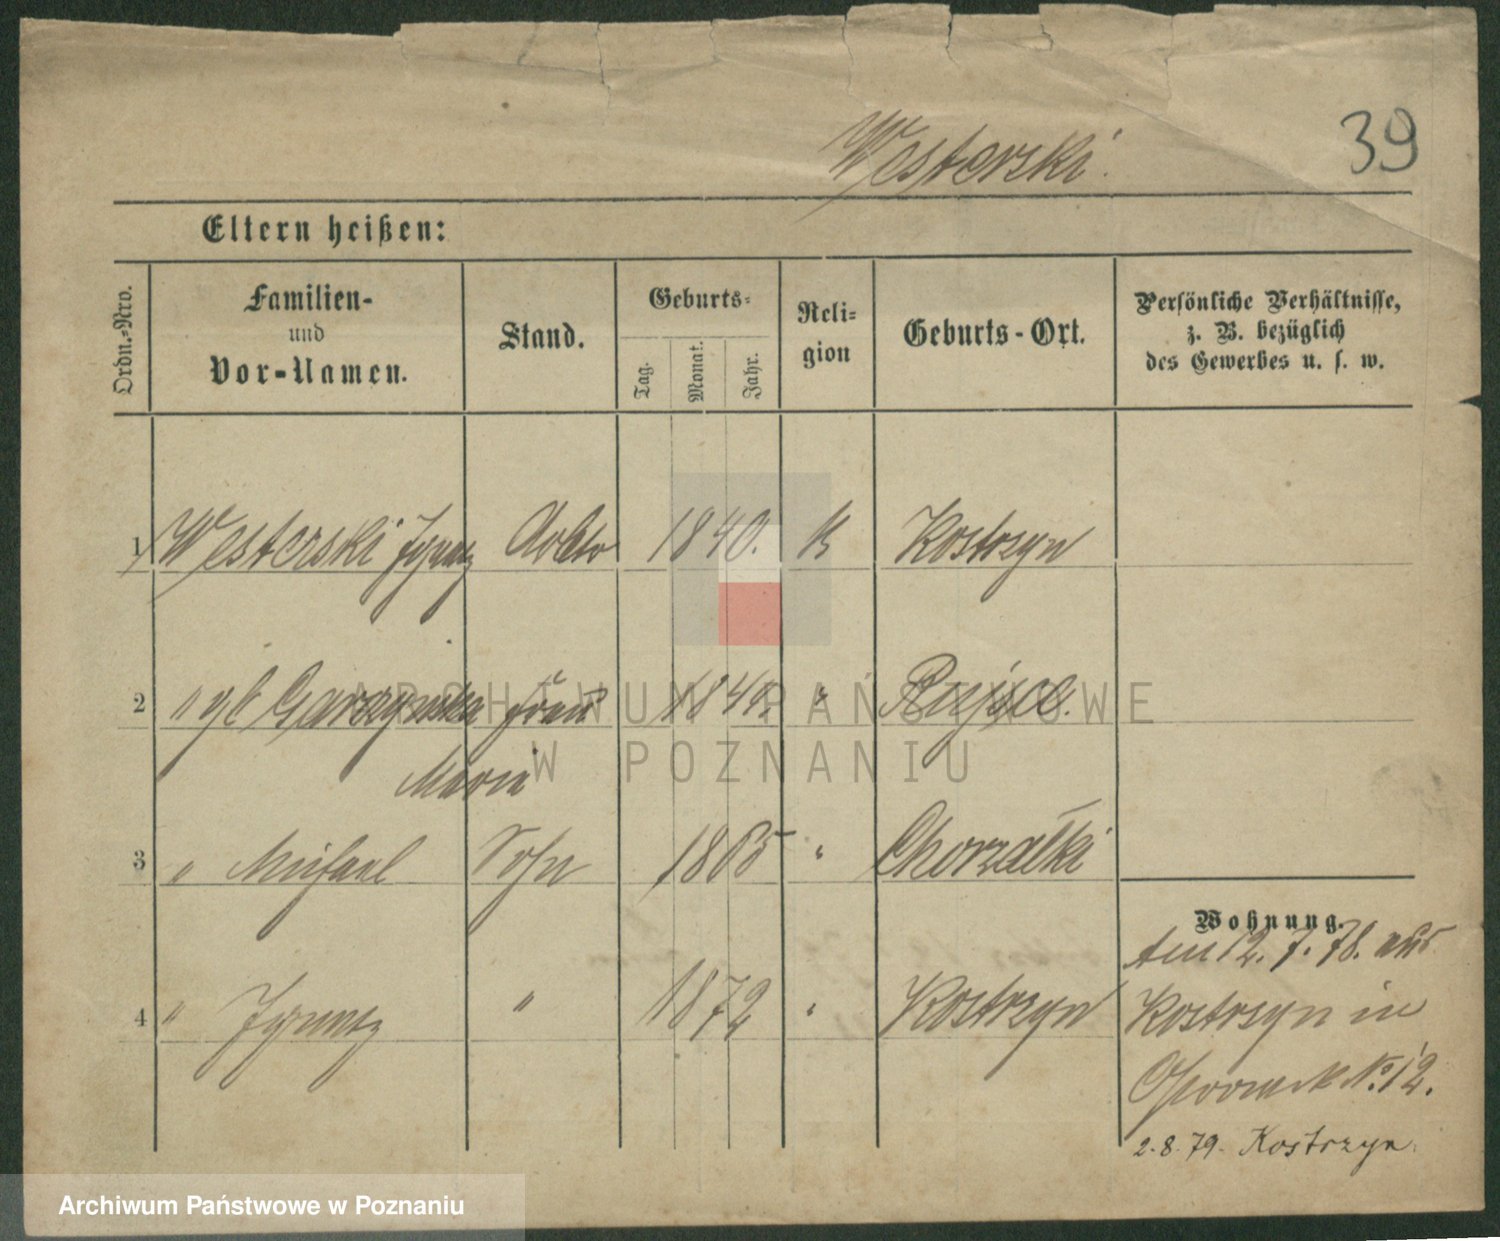 Westerski.
39
Eltern heißen:
Ordn.-Nro.
Familien-
und
Vor-Namen.
Stand.
Geburts-
Tag.
Monat.
Jahr.
Reli-
gion
Geburts-Ort.
Persönliche Verhältnisse,
z. B. bezüglich
des Gewerbes u. s. w.
1 Westerski Ignatz 1840. K Kostrzyn
2 " Garczynska Frau "
Maria
3 " Michael Sohn 1865 "
4 " Ignatz " 1872 " Kostrzyn
Wohnung.
Am 12. 7. 78. aus
Kostrzyn in
No. 12.
2.8.79. Kostrzyn.
ARCHIWUM PAŃSTWOWE
W POZNANIU
Archiwum Państwowe w Poznaniu